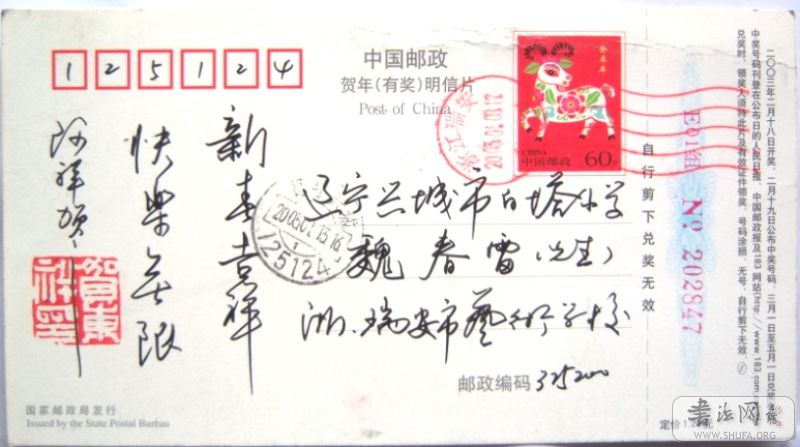 125124
中国邮政
贺年(有奖)明信片
Post of China
癸未年
CHINA
中国邮政 60分
浙江瑞安
2003.01.09.12
2003.01.13.16
125124
辽宁兴城市白塔小学
魏春雷(先生)
浙.瑞安市艺术学校
邮政编码 325200
新春吉祥
快樂無限
阿祥贺
国家邮政局发行
Issued by the State Postal Bureau
自行剪下兑奖无效
E01组 No 202847
二〇〇三年二月十八日开奖,二月十九日公布中奖号码,三月一日至五月一日兑奖。
中奖号码刊登在公布日的人民日报、中国邮政报及183网站(http://www.183.com
兑奖时,领奖人须持此片及有效证件领奖。号码涂损、无号、自行剪下无效。
定价1.20元
书法网
WWW.SHUFA.ORG